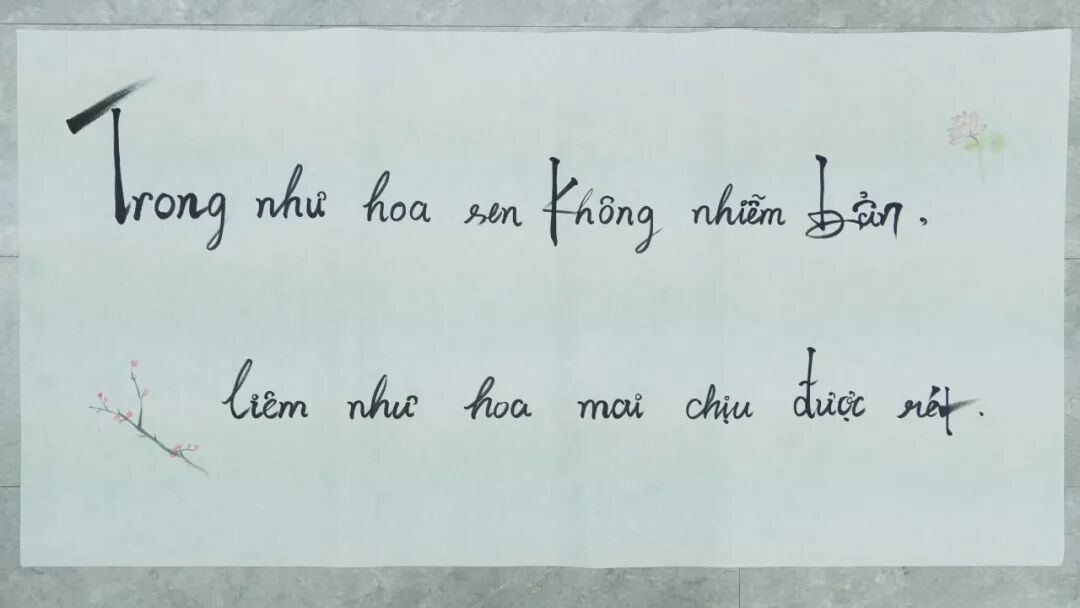 Trong như hoa sen không nhiễm bẩn,
liêm như hoa mai chịu được rét.